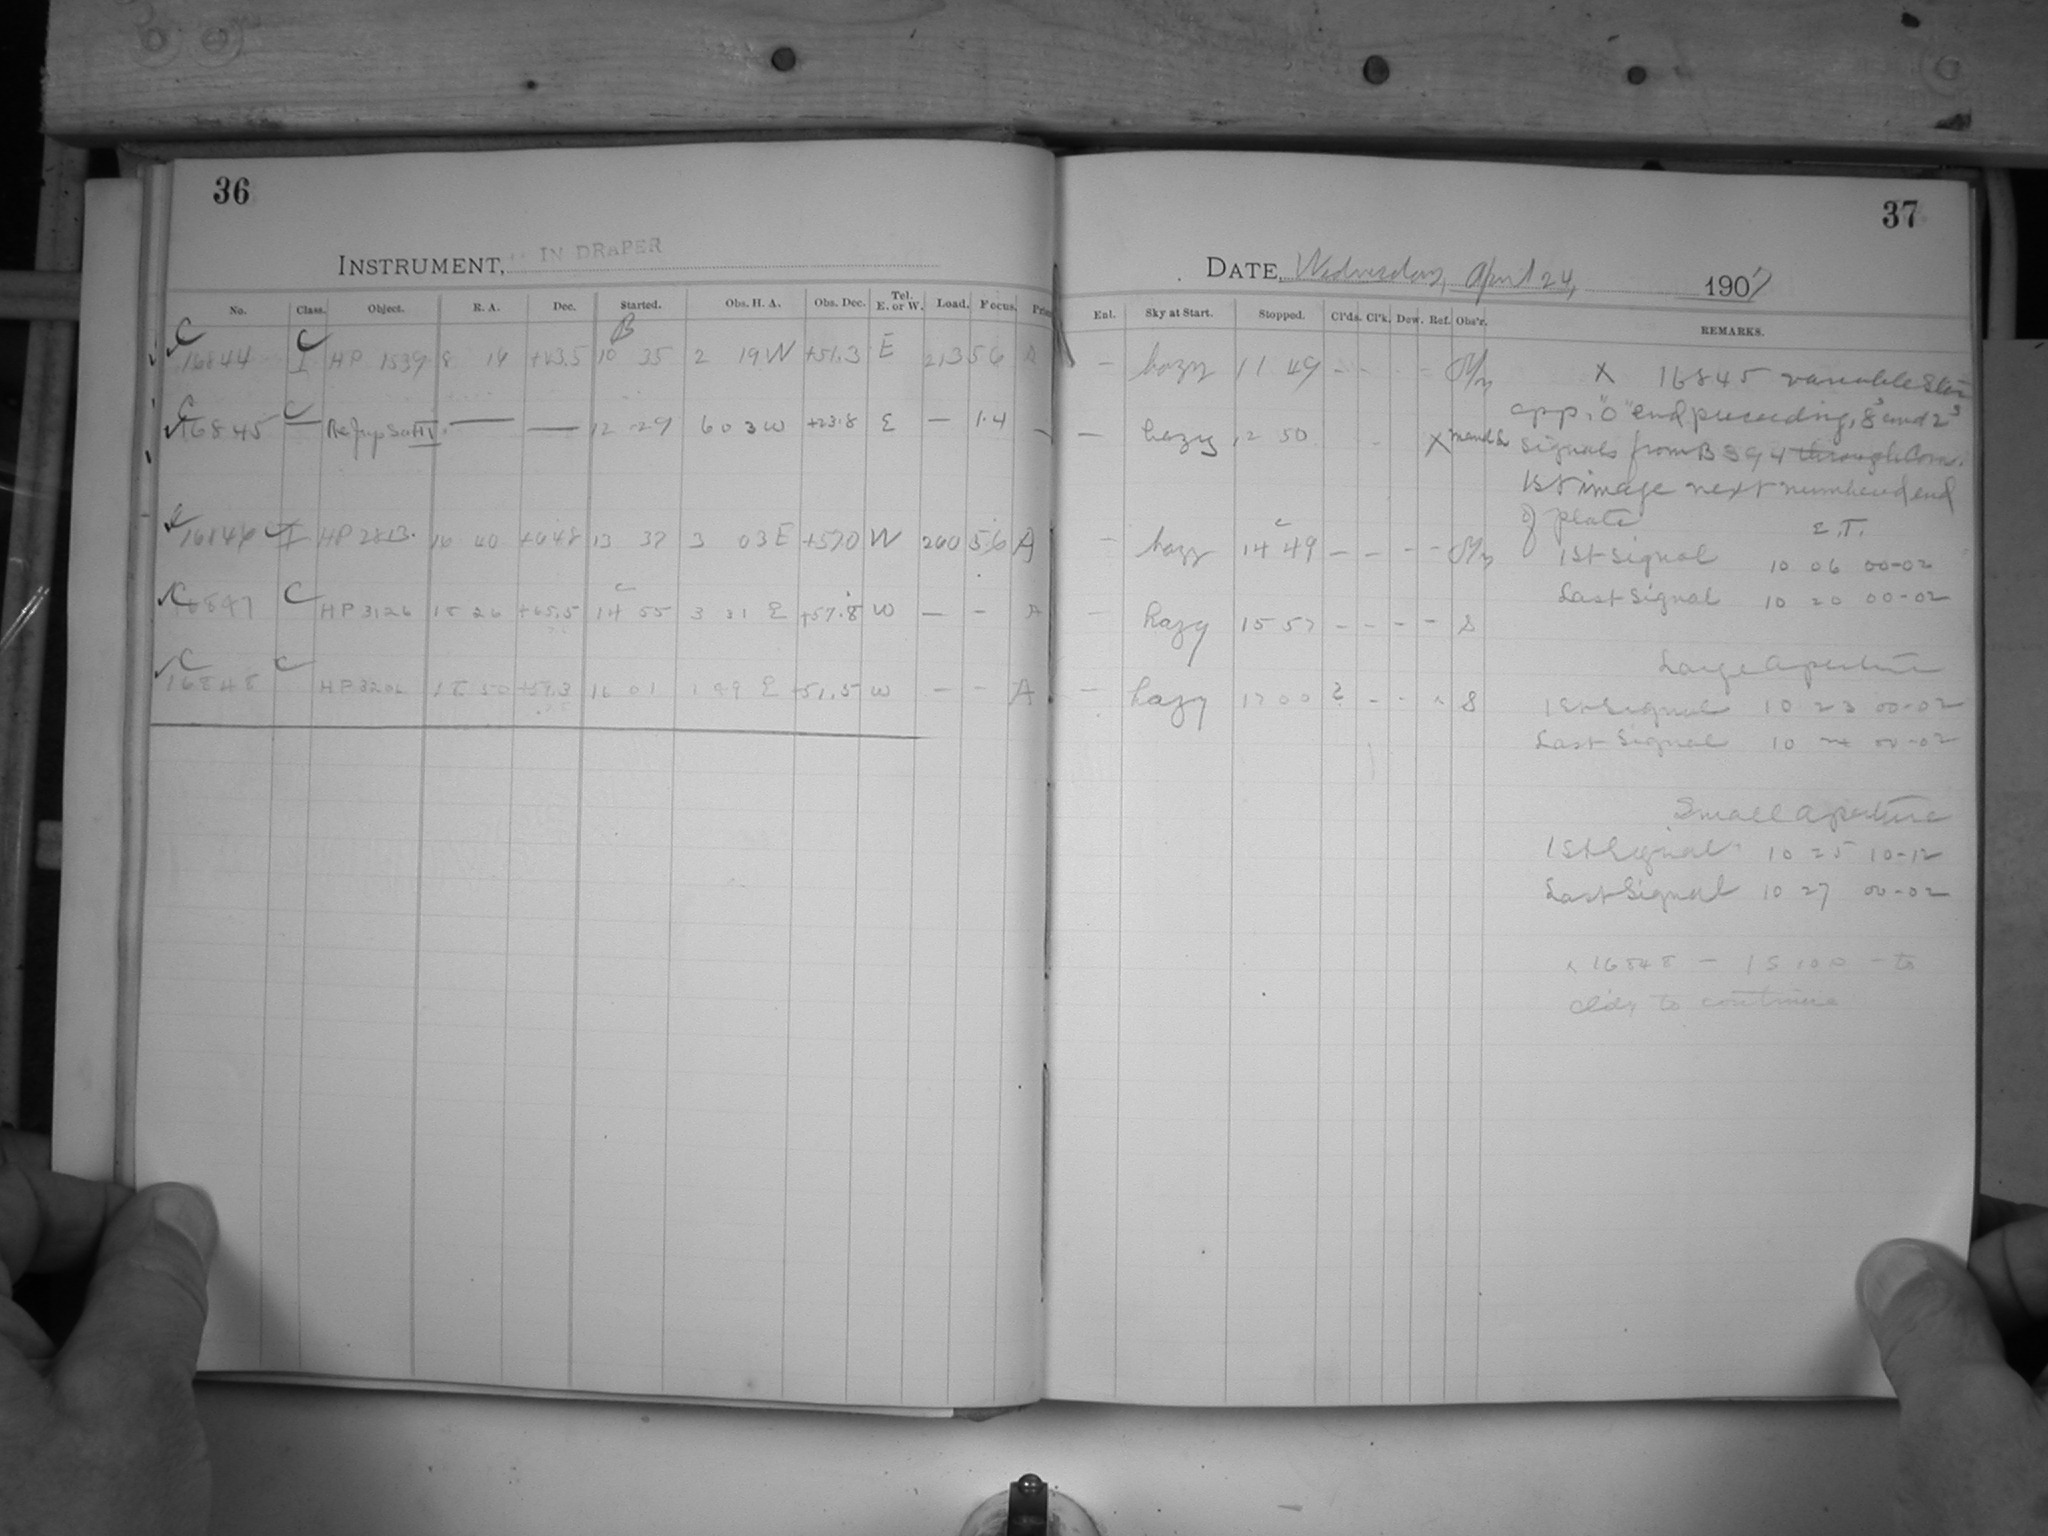 36
INSTRUMENT, 11 IN DRAPER
No. Class. Object. R. A. Dec. Started. Obs. H. A. Obs. Dec. Tel. E. or W. Load. Focus.
C C B
16844 I HP 1539 8 14 10 35 2 19 W +51.3 E 213 56 A
C C
16845 — — 12 29 6 03 W +23.8 E — 1.4 —
16846 I HP 2813 16 40 +64.8 13 37 3 03 E +57.0 W 260 5.6 A
C C
16847 HP 3126 18 26 +65.5 14 55 3 31 E +57.8 W — - A
C C
16848 HP 3206 18 50 +59.3 16 01 1 49 E +51.5 W — - A
37
DATE, Wednesday, April 24, 1907
Enl. Sky at Start. Stopped. Cl'ds. Cl'k. Dew. Ref. Obs'r. REMARKS.
— hazy 11 49 - - -
— hazy 12 50 - X
— hazy 14 49 — — - -
— hazy 15 57 - - - - S
— hazy 17 00 ? - - x S
X 16845 variable Star
opp. "O" end preceding, 8s and 2s
signals from B 394 through Com.
1st image next numbered end
of plate E.T.
1st signal 10 06 00-02
Last signal 10 20 00-02
Large aperture
1st signal 10 23 00-02
Last signal 10 24 00-02
Small aperture
1st signal 10 25 10-12
Last signal 10 27 00-02
x 16848 — to
cldy to continue